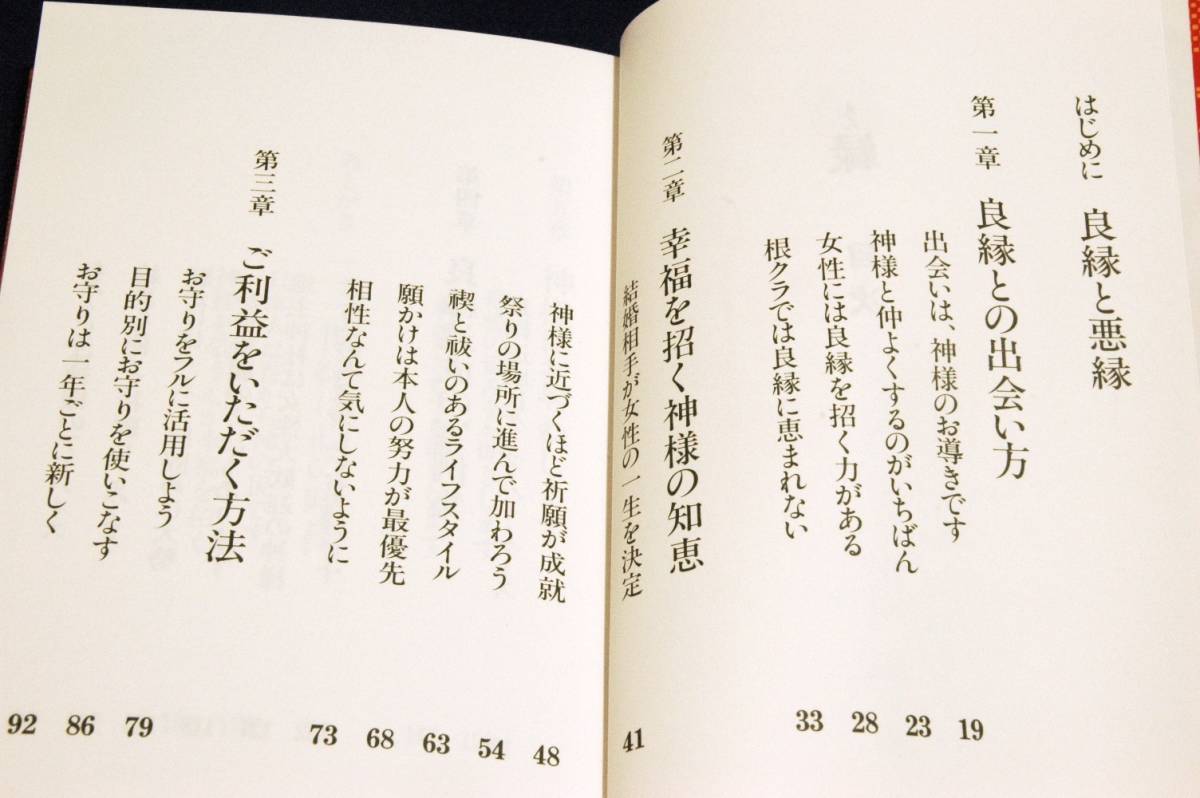 はじめに 良縁と悪縁
第一章 良縁との出会い方
出会いは、神様のお導きです 19
神様と仲よくするのがいちばん 23
女性には良縁を招く力がある 28
根クラでは良縁に恵まれない 33
第二章 幸福を招く神様の知恵
結婚相手が女性の一生を決定 41
神様に近づくほど祈願が成就 48
祭りの場所に進んで加わろう 54
禊と祓いのあるライフスタイル 63
願かけは本人の努力が最優先 68
相性なんて気にしないように 73
第三章 ご利益をいただく方法
お守りをフルに活用しよう 79
目的別にお守りを使いこなす 86
お守りは一年ごとに新しく 92